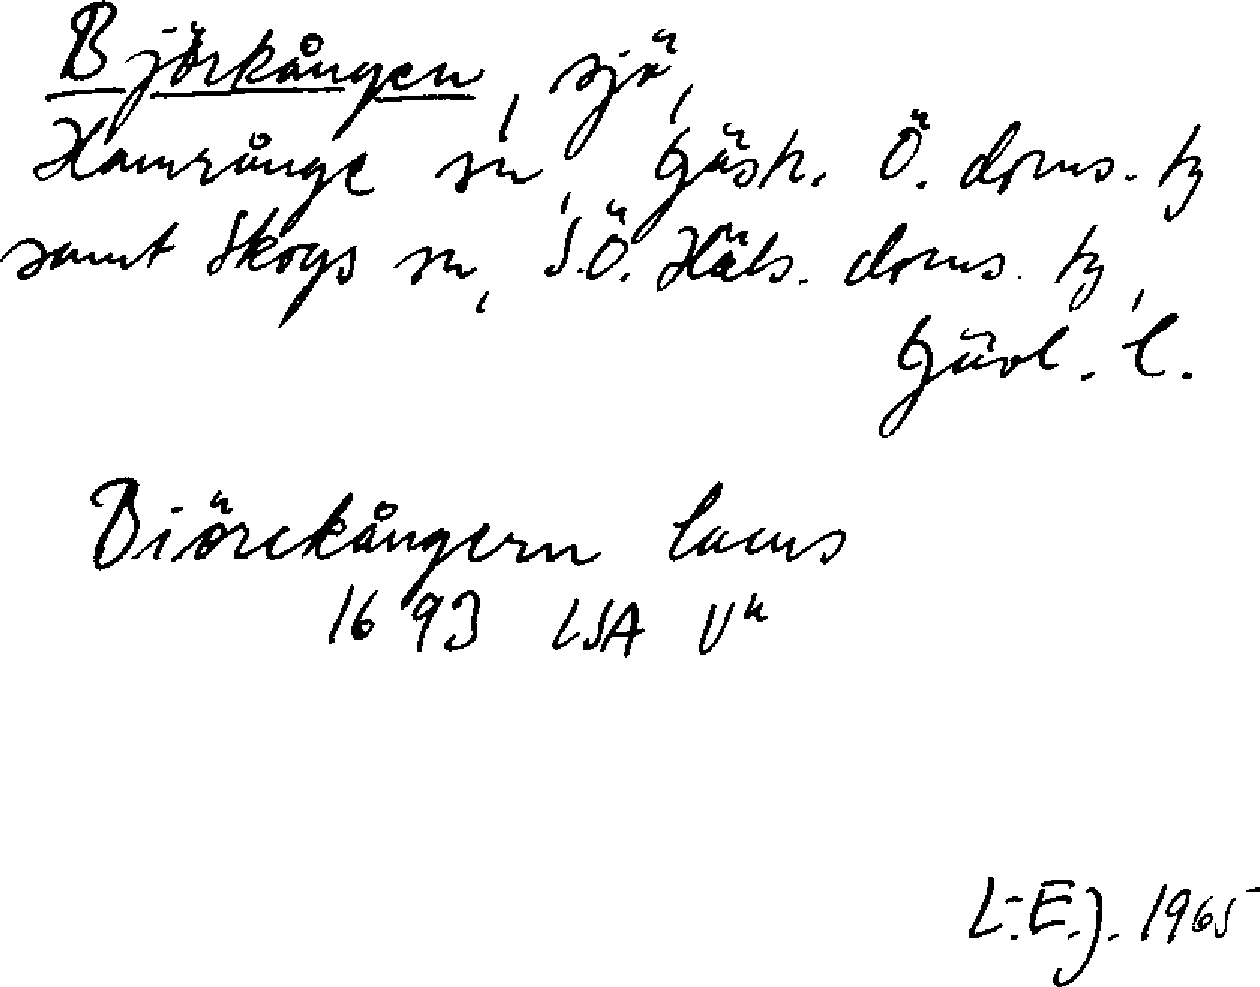 Björkången, sjö,
Hamrånge sn, Gästr. Ö. doms. tg
samt Skogs sn, S.Ö. Häls. doms. tg,
Gävl. l.
Biörckångern lacus
1693 LSA V4
L.E.J. 1965